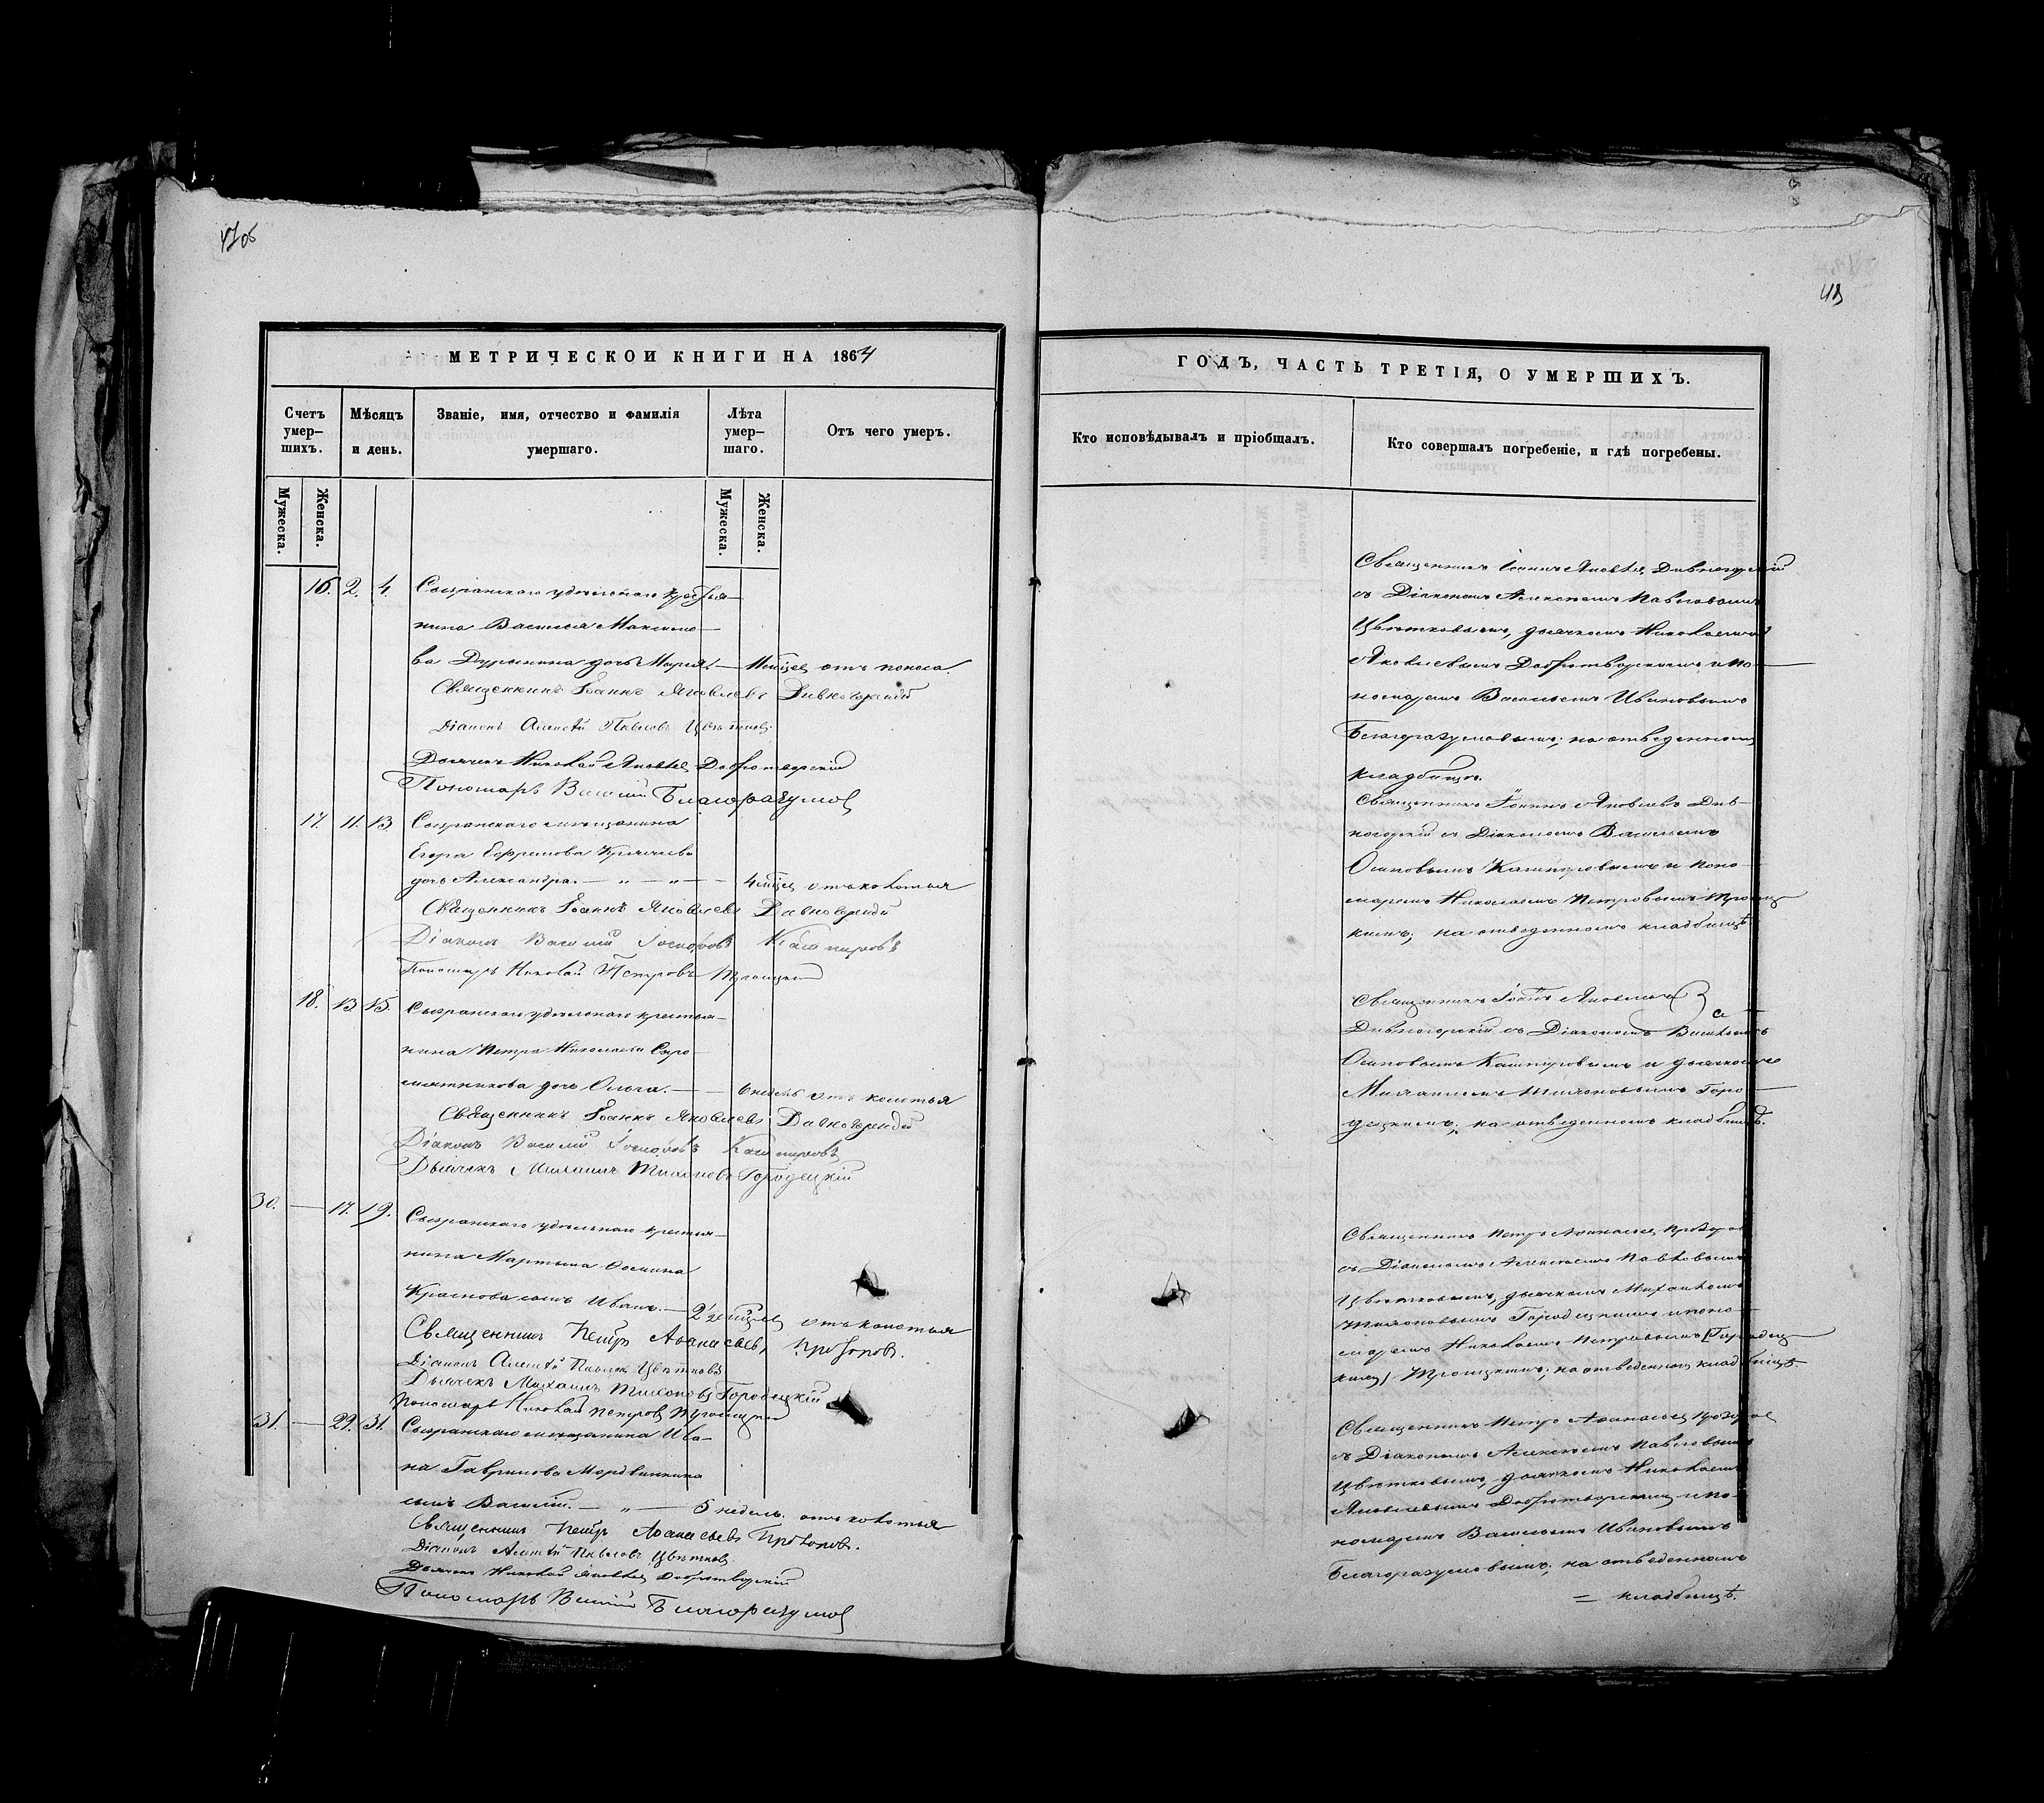 47об
МЕТРИЧЕСКОИ КНИГИ НА 1864
Счетъ умер-шихъ.
Мѣсяцъ и день.
Званіе, имя, отчество и фамилія умершаго.
Лѣта умер-шаго.
Отъ чего умеръ.
Мужеска.
Женска.
Мужеска.
Женска.
16. 2. 4. Сызранскаго удѣльнаго крестья-
нина Василья Максимо-
ва Дурынина дочь Марія. отъ поноса.
Священникъ Іоаннъ Яковлевъ Дивногорскій
Діаконъ Алексѣй Павловъ Цвѣтковъ
Дьячекъ Николай Яковлев Добротворскій
Пономарь Василій Благоразумов
17. 11. 13. Сызранскаго мѣщанина
Егора Ефремова
дочь Александра. — „ — „ — 4 мѣсяц отъ колотья
Священникъ Іоаннъ Яковлевъ Дивногорскій
Діаконъ Василій Іосифовъ Кашпировъ
Пономарь Николай Петровъ Троицкій
18. 13. 15. Сызранскаго удѣльнаго крестья-
нина Петра Николаева Сыро-
мятникова дочь Ольга. — 6 недѣль отъ колотья
Священникъ Іоаннъ Яковлевъ Дивногорскій
Діаконъ Василій Іосифовъ Кашпировъ
Дьячекъ Михаилъ Тихоновъ Городецкій
30. — 17. 19. Сызранскаго удѣльнаго крестья-
нина Мартына Осипина
Краснова сынъ Иванъ. — отъ колотья
Священникъ Петръ Аѳанасьевъ Прозоровъ.
Діаконъ Алексѣй Павловъ Цвѣтковъ
Дьячекъ Михаилъ Тихоновъ Городецкій
Пономарь Николай Петровъ Троицкій
31. — 29. 31. Сызранскаго мѣщанина Ива-
на Гаврилова Мордвинкина
сынъ Василій. — „ — 5 недель. отъ колотья
Священникъ Петръ Аѳанасьевъ Прозоровъ.
Діаконъ Алексѣй Павловъ Цвѣтковъ
Дьячекъ Николай Яковлев Добротворскій
Пономарь Василій Благоразумов
48
ГОДЪ, ЧАСТЬ ТРЕТІЯ, О УМЕРШИХЪ.
Кто исповѣдывалъ и пріобщалъ.
Кто совершалъ погребеніе, и гдѣ погребены.
Священникъ Іоаннъ Яковлев Дивногорскій
съ Діакономъ Алексѣемъ Павловымъ
Цвѣтковымъ, дьячкомъ Николаемъ
Яковлевымъ Добротворскимъ и по-
номаремъ Васильемъ Ивановымъ
Благоразумовымъ; на отведенномъ
кладбищѣ.
Священникъ Іоаннъ Яковлевъ Див-
ногорскій съ Діакономъ Васильемъ
Осиповымъ Кашпировымъ и поно-
маремъ Николаемъ Петровымъ Троиц-
кимъ; на отведенномъ кладбищѣ
Священникъ Іоаннъ Яковлевъ
Дивногорскій съ Діакономъ Васильемъ
Осиповымъ Кашпировымъ и дьячкомъ
Михаиломъ Тихоновымъ Горо-
децкимъ; на отведенномъ кладбищѣ.
Священникъ Петръ Аѳанасьев Прозоров
съ Діакономъ Алексѣемъ Павловымъ
Цвѣтковымъ, дьячкомъ Михаиломъ
Тихоновымъ Городецкимъ и поно-
маремъ Николаемъ Петровымъ (Городец-
кимъ) Троицкимъ; на отведенном кладбищѣ.
Священникъ Петръ Аѳанасьев Прозоров
съ Діакономъ Алексѣемъ Павловымъ
Цвѣтковымъ, дьячкомъ Николаемъ
Яковлевымъ Добротворским и по-
номаремъ Васильемъ Ивановымъ
Благоразумовымъ; на отведенномъ
= кладбищѣ.